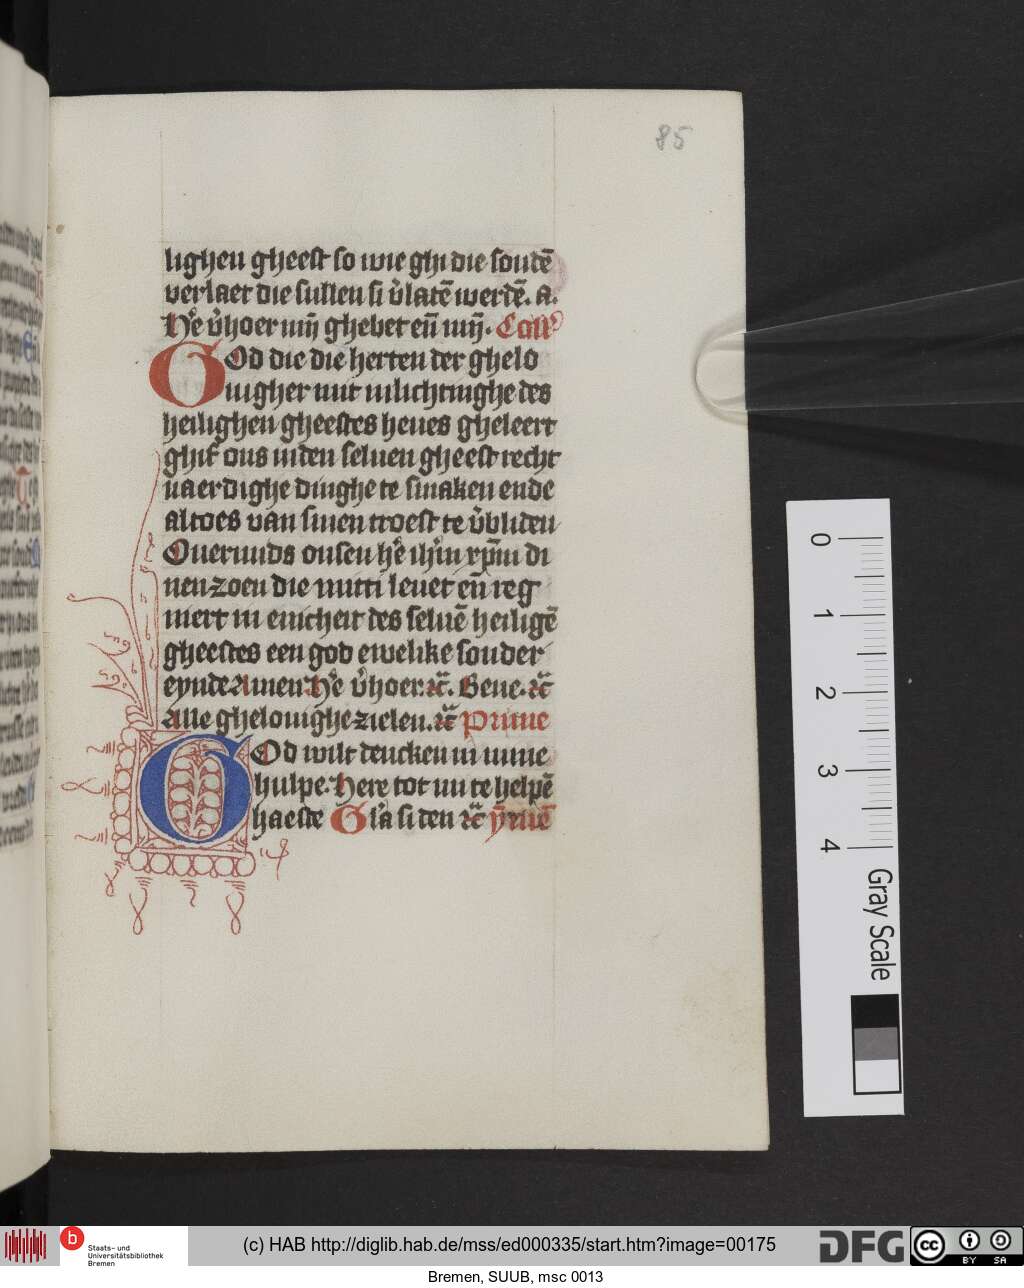 85
lighen gheest so wie ghi die sondē
verlaet die sullen si v̉latē werdē. a.
He᷑ v̉hoer mȷ̄ ghebet en̄ mȷ̄. Coll᷑
God die die herten der ghelo
uigher mit inlichtinghe des
heilighen gheestes heues gheleert
ghif ons inden seluen gheest recht
uaerdighe dinghe te smaken ende
altoes van sinen troest te v̉bliden
Ouermids onsen he᷑ ih᷑m xp̄m di
nen zoen die mitti leuet en̄ reg
niert in enicheit des seluē heiligē
gheestes een god ewelike sonder
eynde Amen He᷑ v̉hoer. ⁊c̄. Bene. ⁊c̄
Alle ghelouighe zielen. ⁊c̄ Prime
God wilt dencken in mine
hulpe. Here tot mi te helpē
haeste Gl᷑a si den ⁊c̄ ȳmē
0
1
2
3
4
Gray Scale
b
Staats- und
Universitätsbibliothek
Bremen
(c) HAB http://diglib.hab.de/mss/ed000335/start.htm?image=00175
DFG
cc
BY SA
Bremen, SUUB, msc 0013